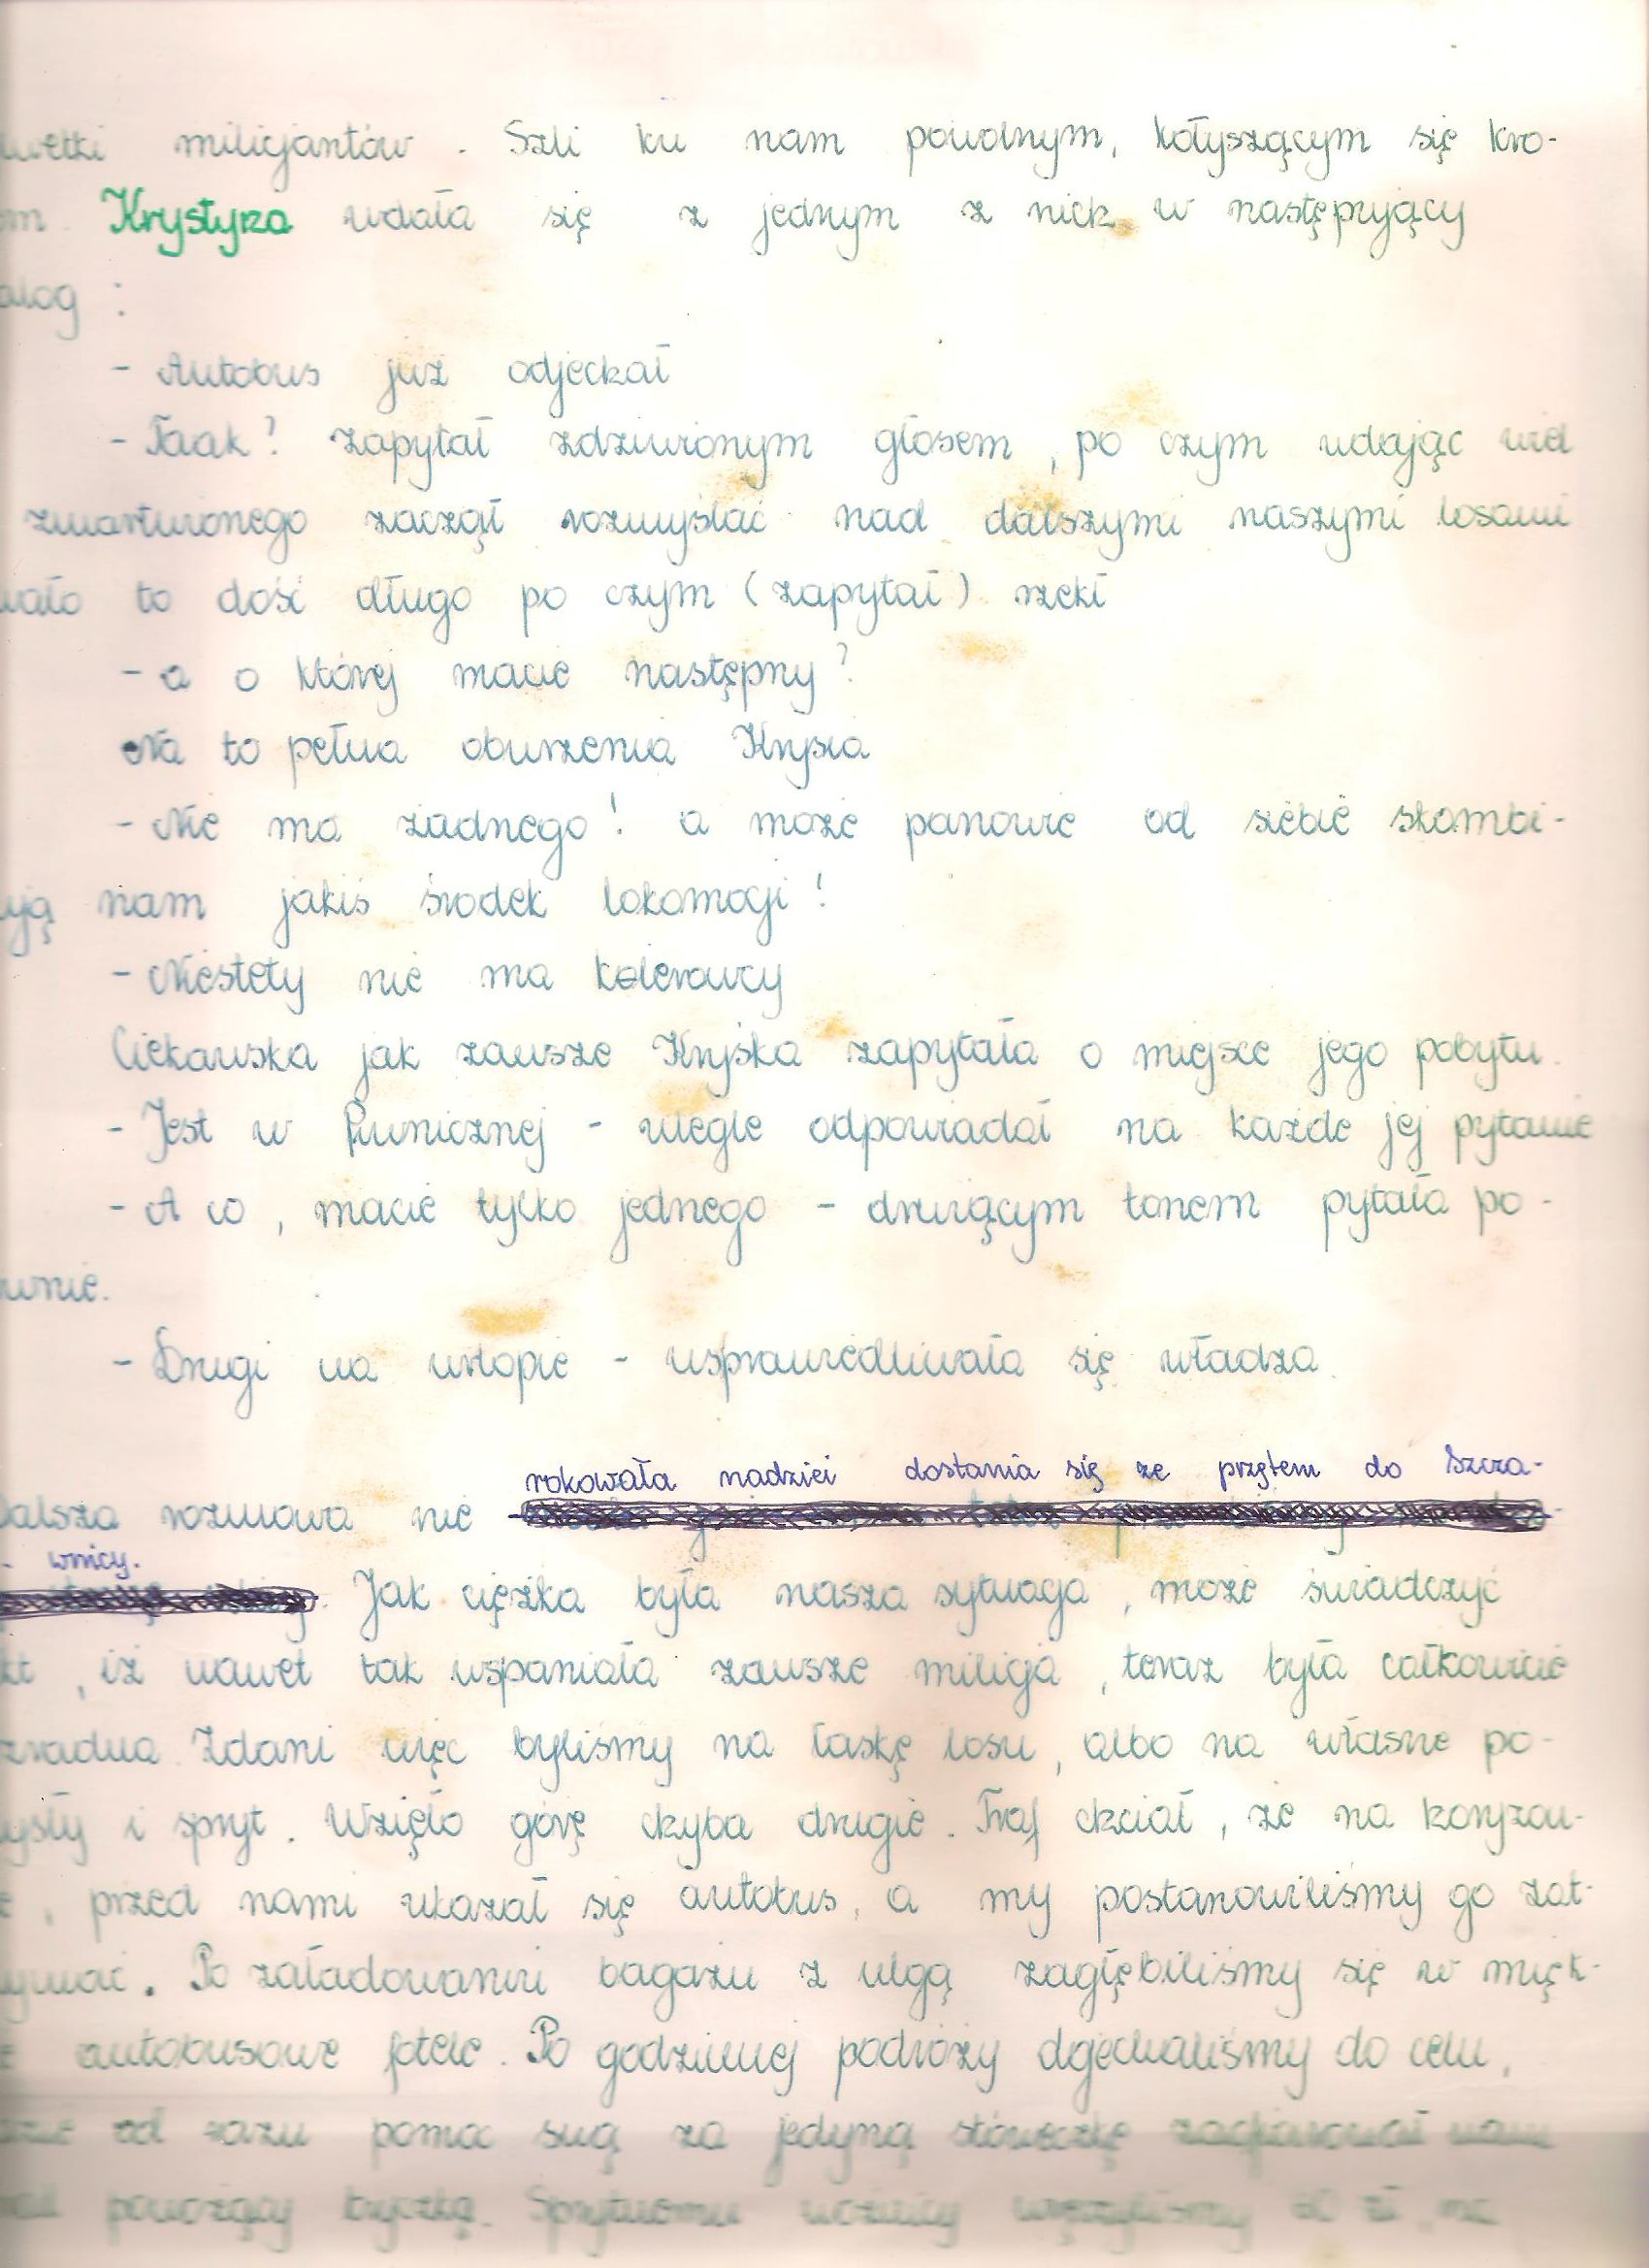 lwetki milicjantów. Szli ku nam powolnym, kołyszącym się kro-
em. Krystyna wdała się z jednym z nich w następujący
alog :
- Autobus już odjechał
- Taak? zapytał zdziwionym głosem, po czym udając wiel
zmartwionego zaczął rozmyślać nad dalszymi naszymi losami
wało to dość długo po czym (zapytał) rzekł
- a o której macie następny?
Na to pełna oburzenia Krysia
- Nie ma żadnego! a może panowie od siebie skombi-
ują nam jakiś środek lokomocji!
- Niestety nie ma kolerowcy
Ciekawska jak zawsze Kryśka zapytała o miejsce jego pobytu.
- Jest w Piwnicznej - ulegle odpowiadał na każde jej pytanie
- A co, macie tylko jednego - drwiącym tonem pytała po-
ownie.
- Drugi na urlopie - usprawiedliwiała się władza.
rokowała nadziei dostania się ze przętem do Szcza-
Dalsza rozmowa nie
- wnicy.
Jak ciężka była nasza sytuacja, może świadczyć
kt, iż nawet tak wspaniała zawsze milicja, teraz była całkowicie
zradna. Zdani więc byliśmy na łaskę losu, albo na własne po-
ysły i spryt. Wzięło górę chyba drugie. Traf chciał, że na horyzon-
e, przed nami ukazał się autobus, a my postanowiliśmy go zat-
ymać. Po załadowaniu bagażu z ulgą zagłębiliśmy się w mięk-
e autobusowe fotele. Po godzinnej podróży dojechaliśmy do celu,
dzie od razu pomoc swą za jedyną stóweczkę zaofiarował nam
powożący bryczką. Sprytnemu woźnicy wręczyliśmy 80 zł, na